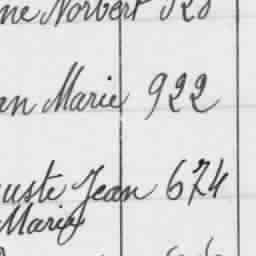 ne Norbert 328
an Marie 922
uste Jean 674
Marie